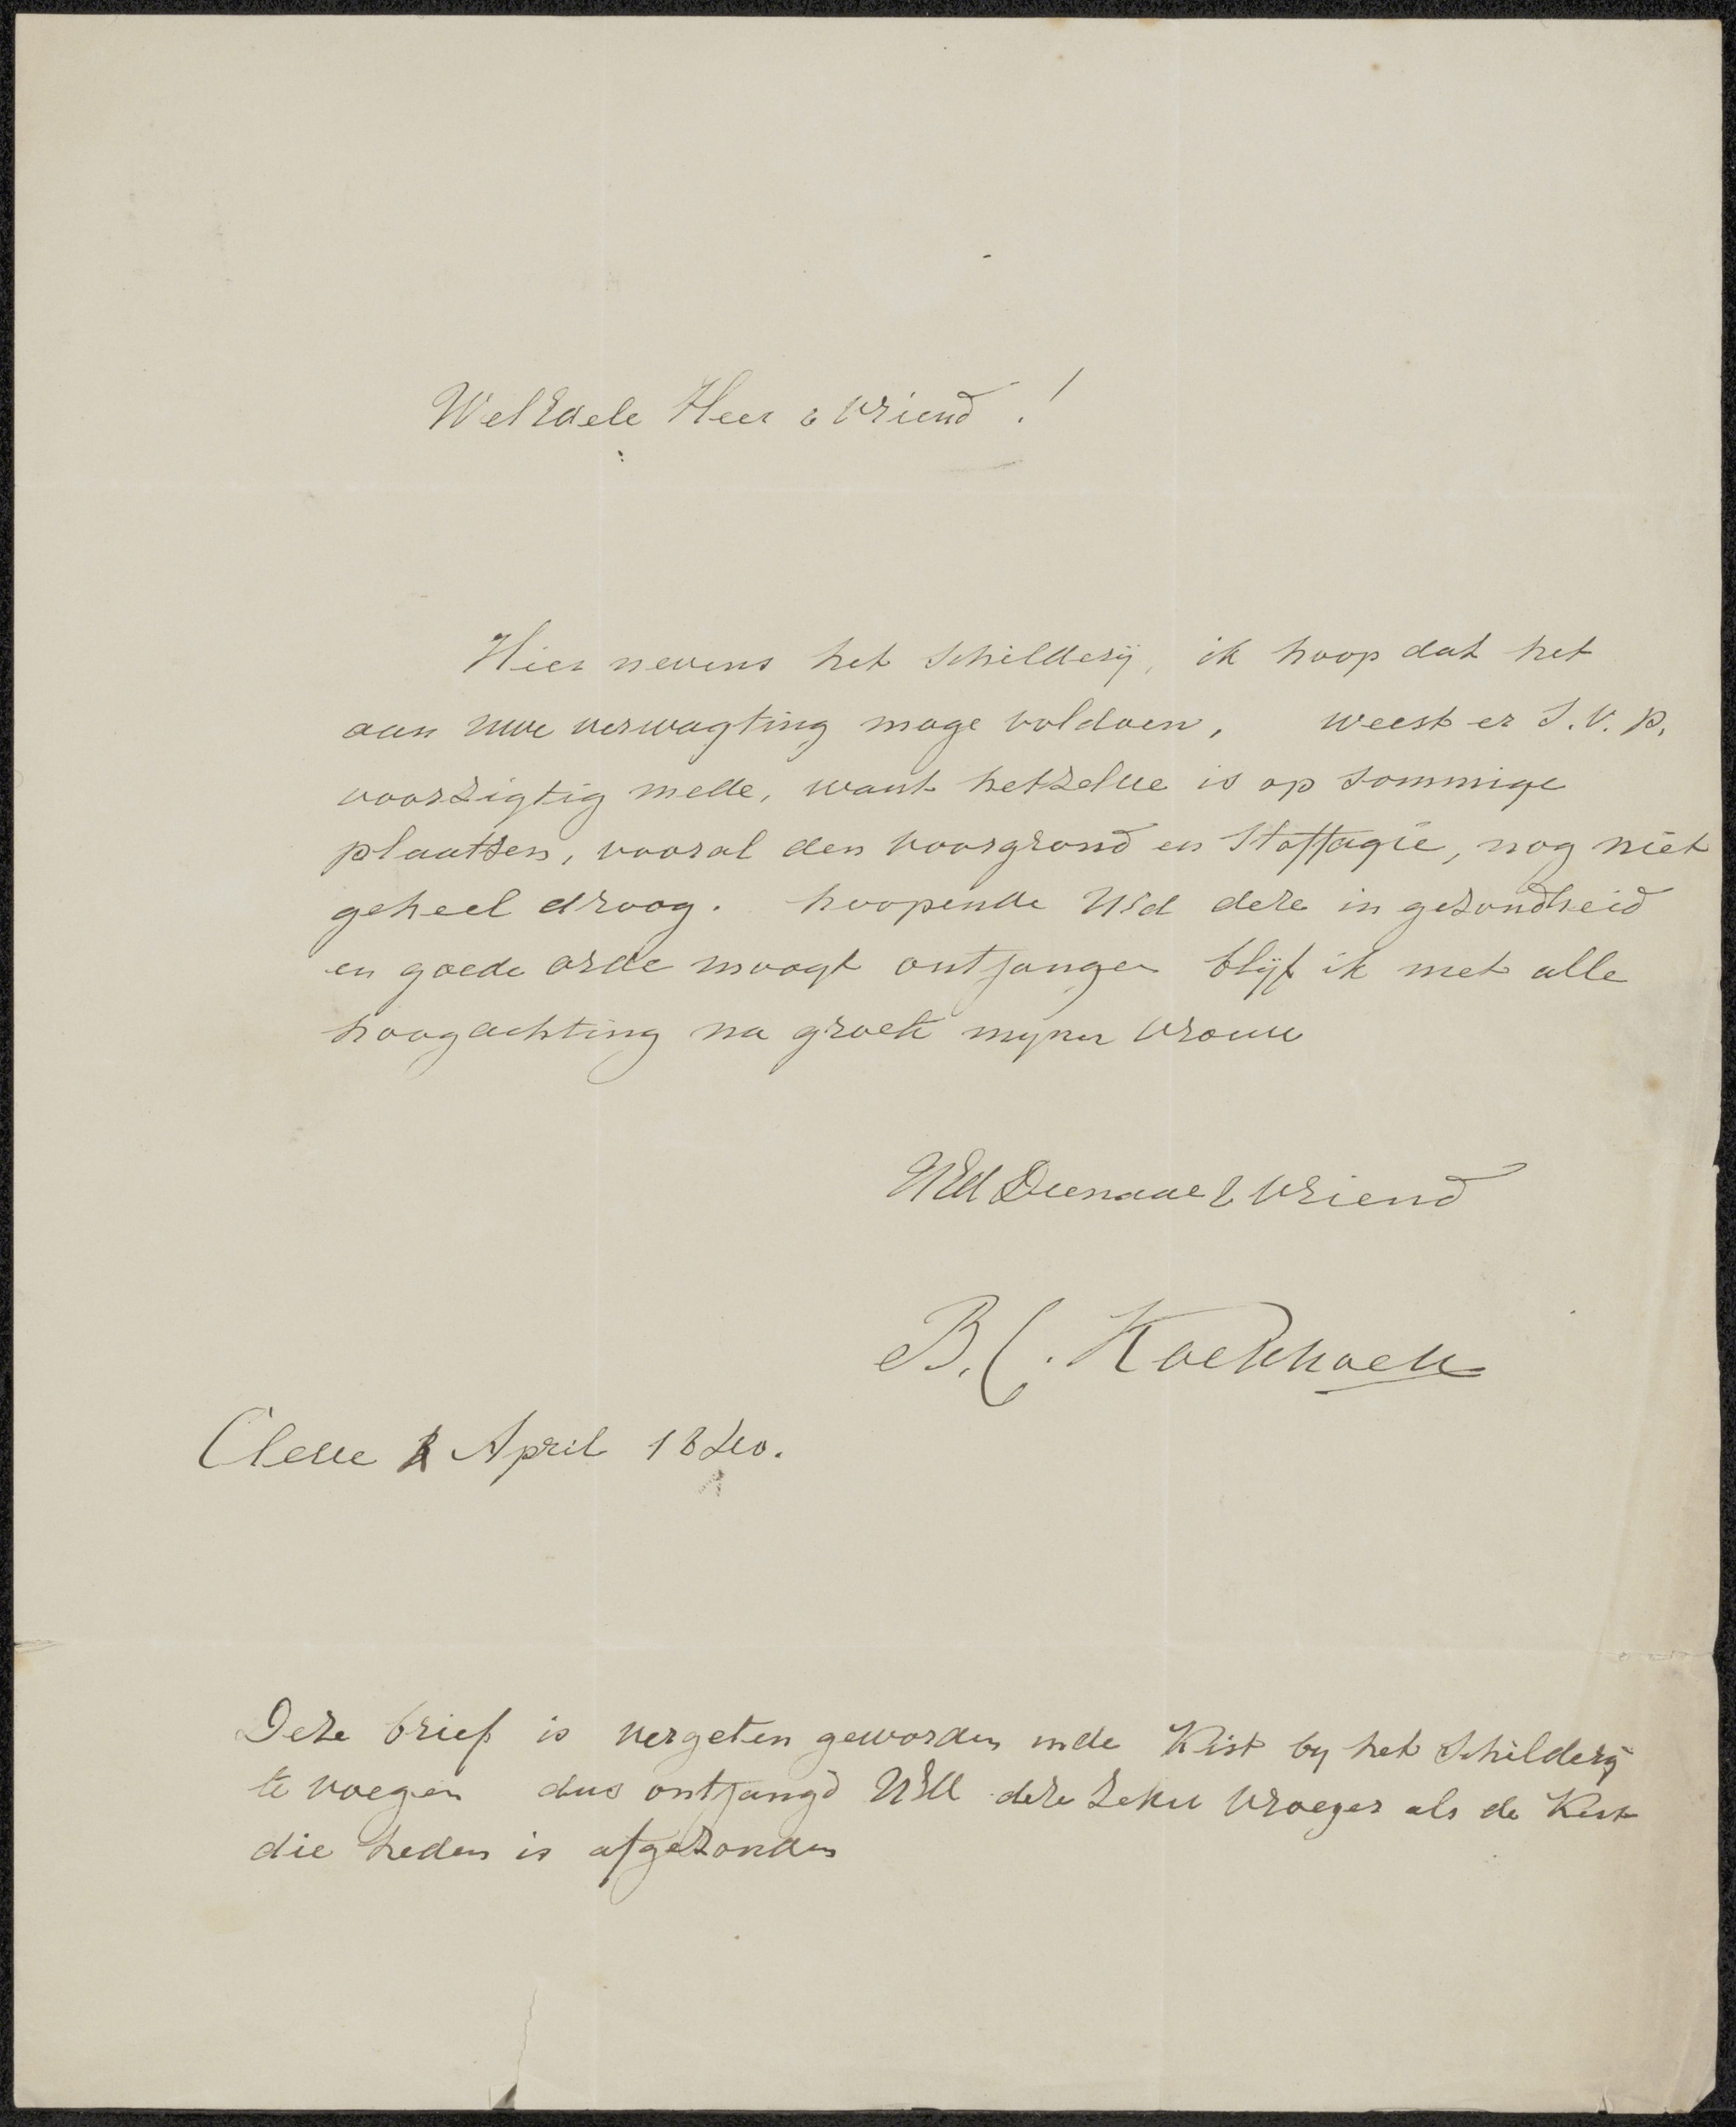 WelEdele Heer & Vriend !
Hier nevens het Schilderij, ik hoop dat het
aan uwe verwagting moge voldoen, weest er S.V.P.
voorzigtig mede, want hetzelve is op sommige
plaatsen, vooral den voorgrond en Stoffagie, nog niet
geheel droog. hoopende UEd deze in gezondheid
en goede orde moogt ontfangen blijf ik met alle
hoogachting na groete mijner vrouw
UEd Dienaar & Vriend
B. C. Koekkoek
Cleve April 1840.
Deze brief is vergeten geworden in de Kist by het Schilderij
te voegen dus ontfangd UEd deze zeker vroeger als de Kist
die heden is afgezonden